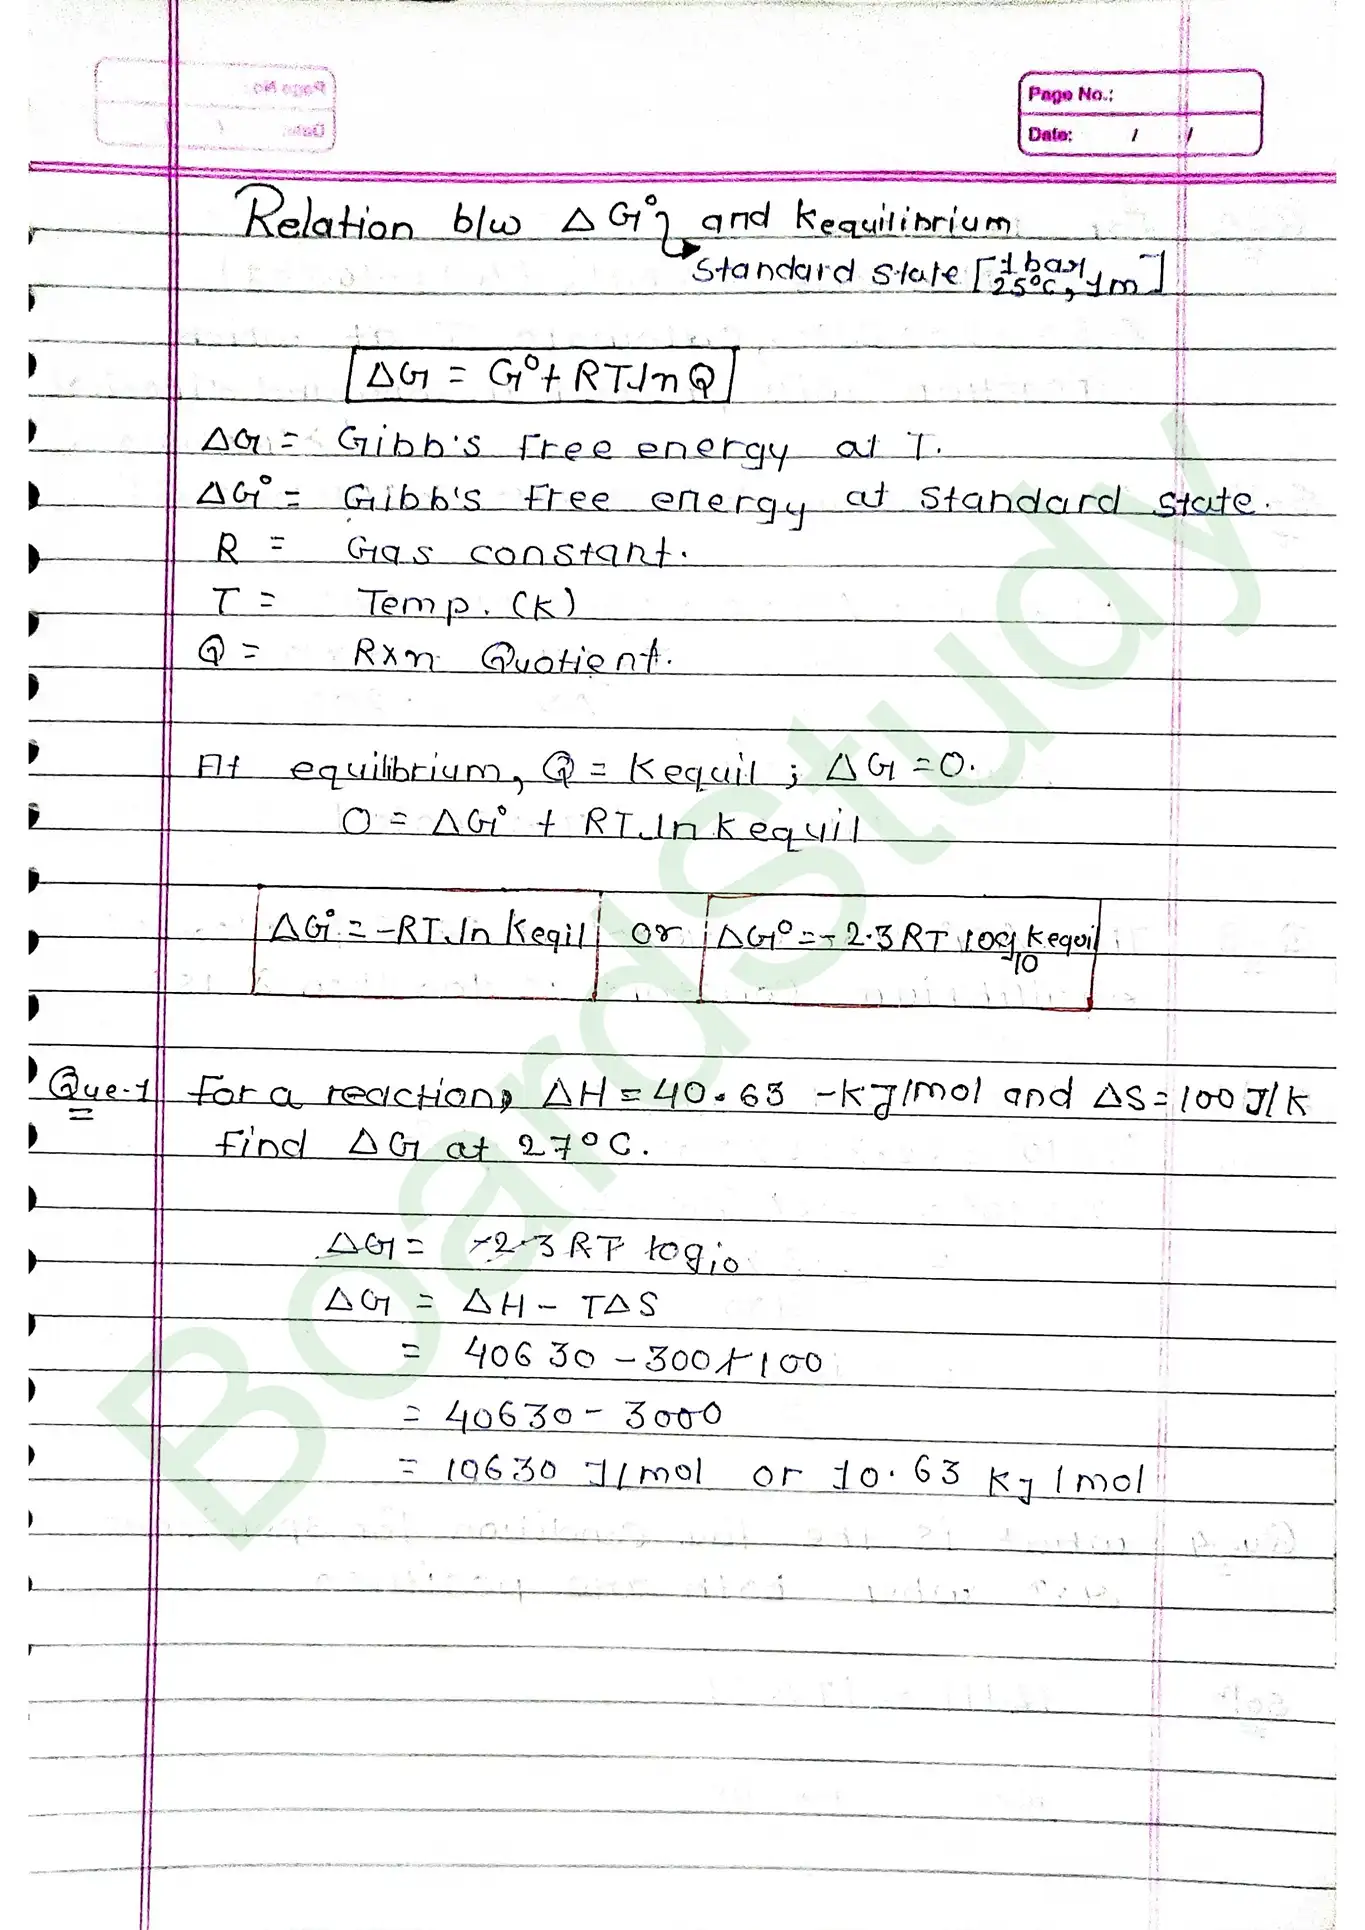 Page No.:
Date: / /
Relation b/w ΔG° and Kequilibrium
Standard state [1 bar, 25°C, 1m]
ΔG = G° + RT.ln Q
ΔG = Gibb's free energy at T.
ΔG° = Gibb's free energy at standard state.
R = Gas constant.
T = Temp. (K)
Q = Rxn Quotient.
At equilibrium, Q = Kequil ; ΔG = 0.
0 = ΔG° + RT.ln Kequil
ΔG° = -RT.ln Keqil or ΔG° = -2.3 RT log10 Kequil
Que.1 For a reaction, ΔH = 40.63 -KJ/mol and ΔS = 100 J/K
find ΔG at 27°C.
ΔG = -2.3 RT log10
ΔG = ΔH - TΔS
= 40630 - 300 × 100
= 40630 - 3000
= 10630 J/mol or 10.63 KJ/mol
BoardStudy